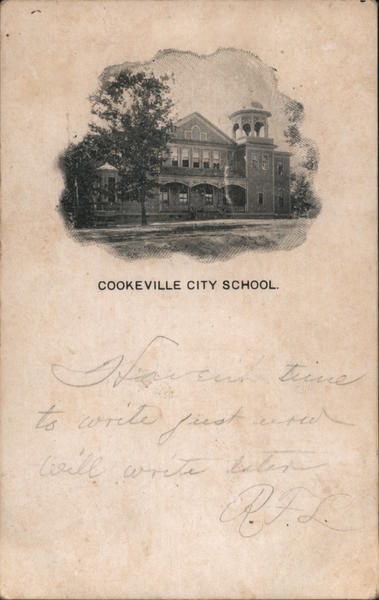 COOKEVILLE CITY SCHOOL.
Haven't time
to write just now
will write later
R.F.L.